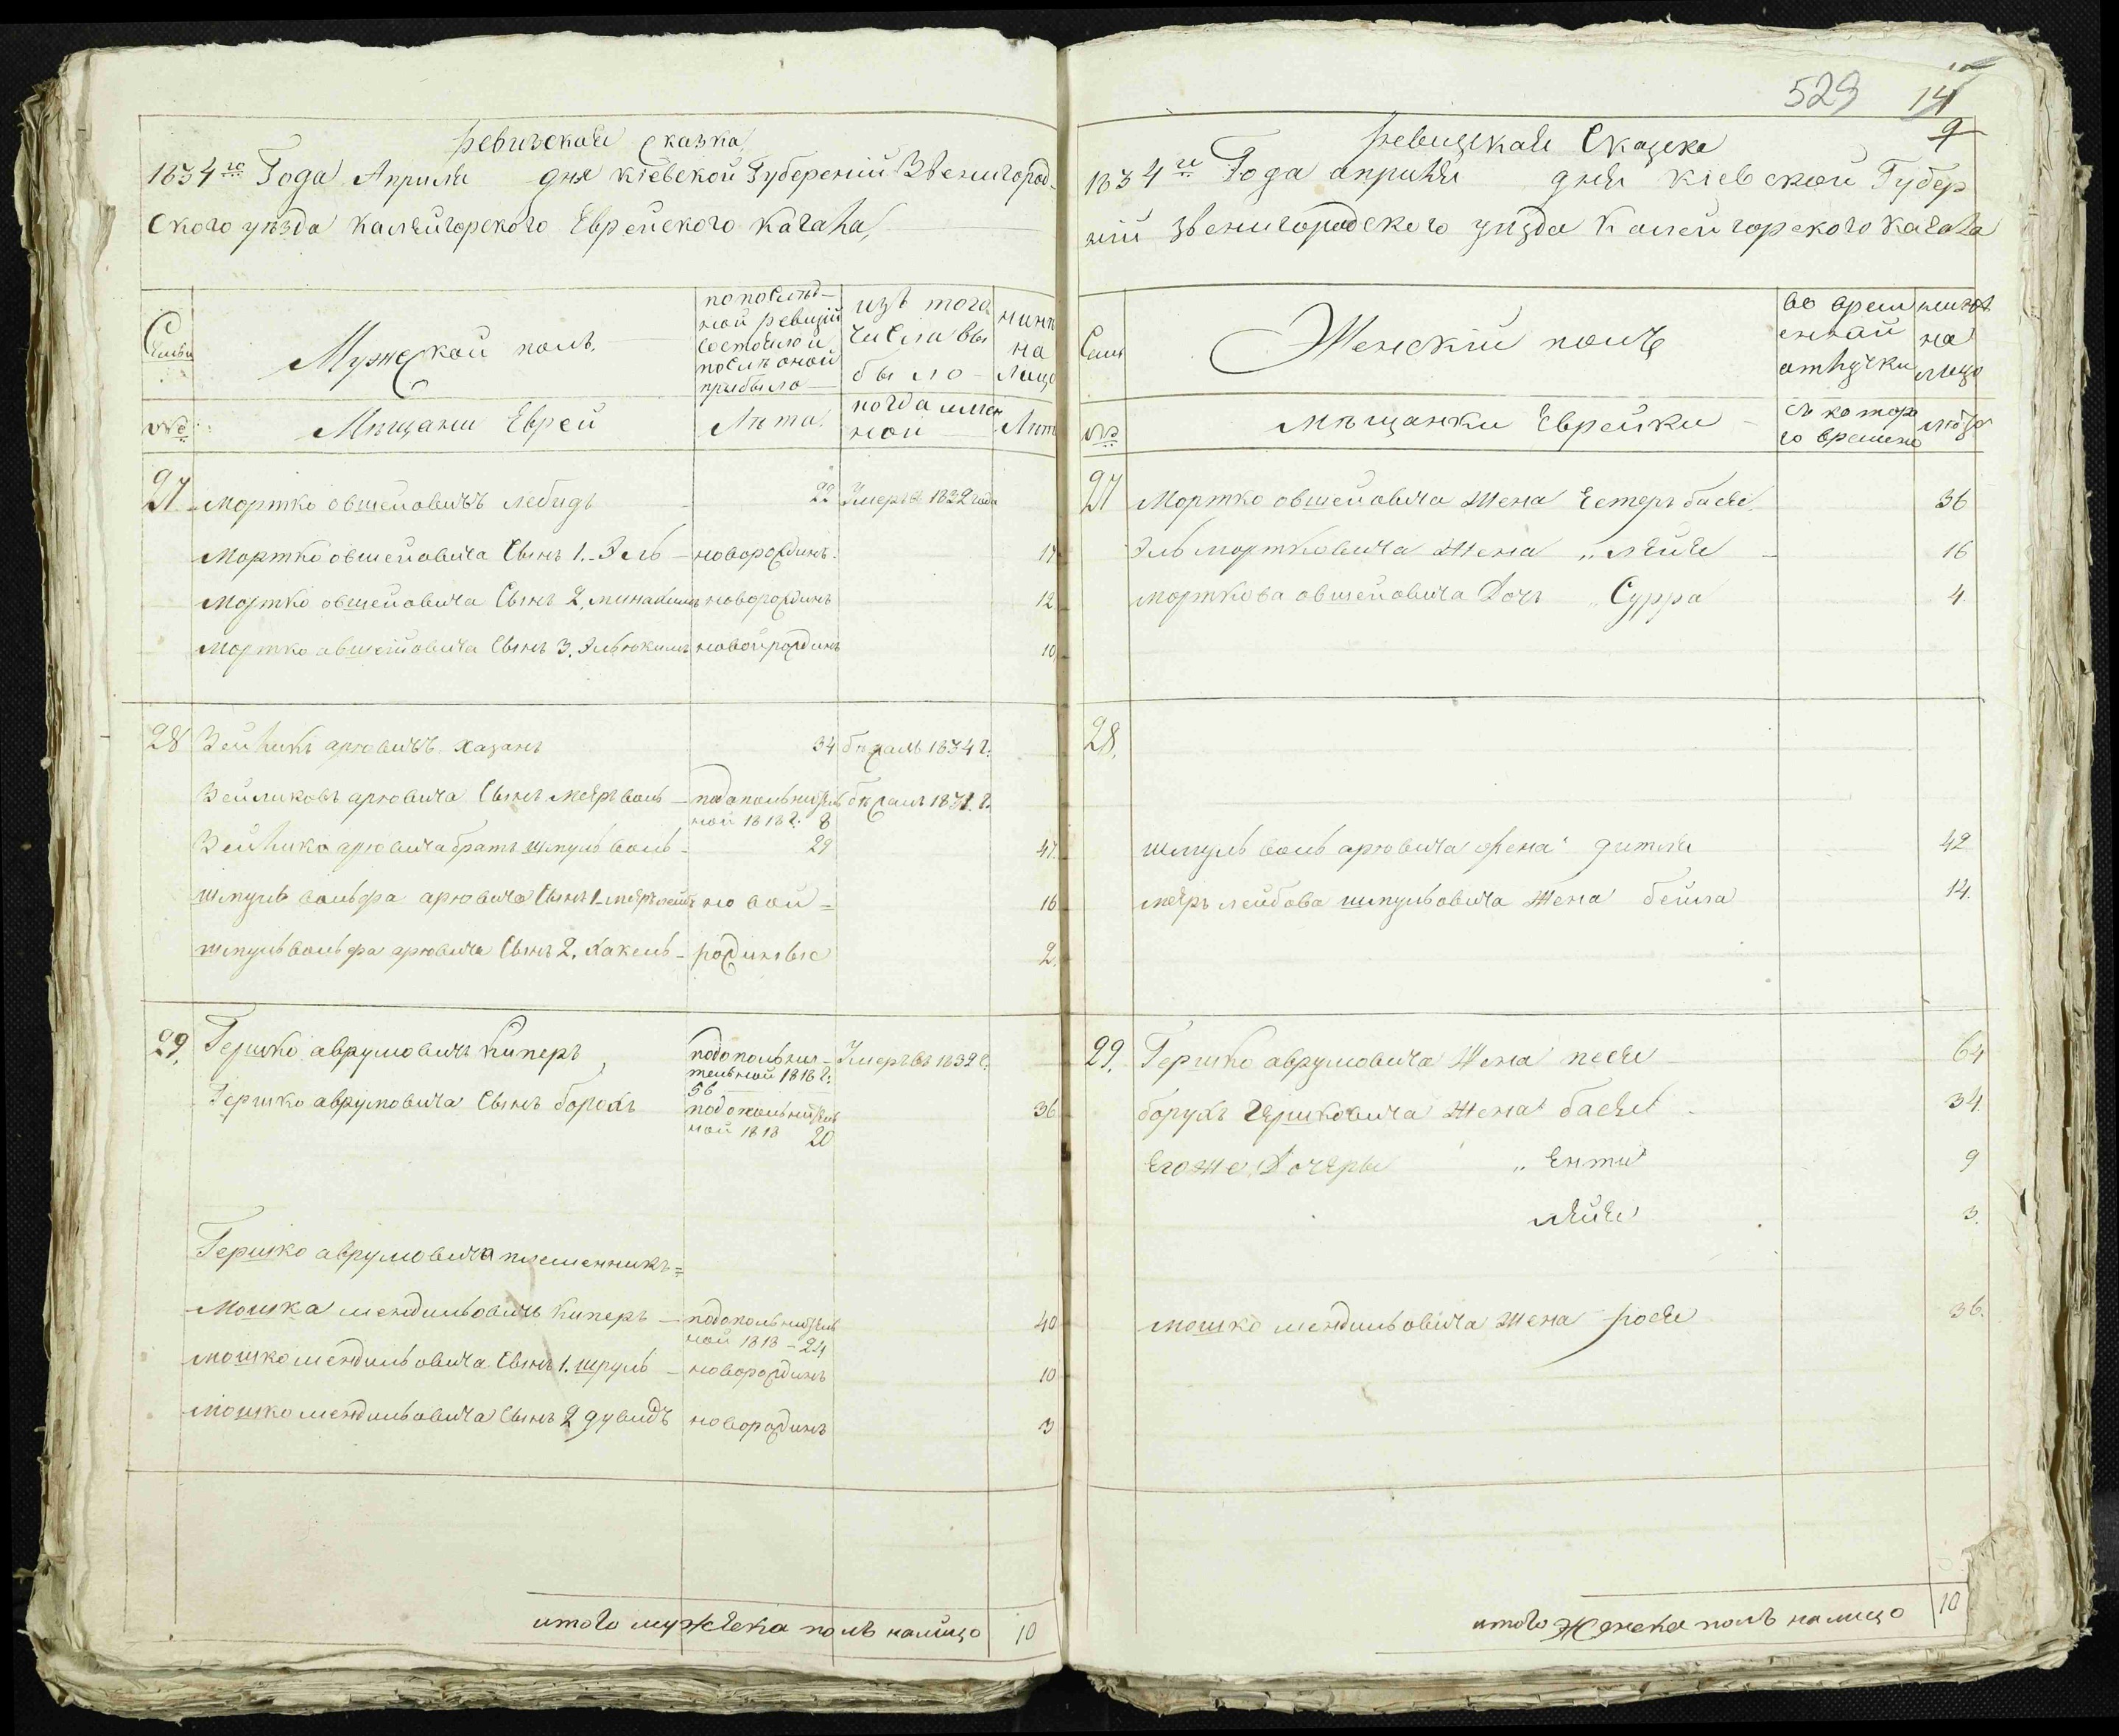 ревизская сказка
1834го Года Априля дня кіевской Губереніи Звенигород-
ского уѣзда калѣйгорского Еврейского кагала,
Семьи
Мужеской полъ.
по последней ревизіи состояло и послѣ оной прибыло
изъ того числа выбыло
нынѣ на лицо
№
Мѣщани Евреи
Лѣта
когда именной
Лѣт
27 мортко овшеиовичъ лебидь 22 Умеръ 1832 года
мортко овшеиовича Сынъ 1. Эль новорождинъ 17
мортко овшеиовича Сынъ 2, минахимъ новорождинъ 12
мортко авшеиовича Сынъ 3. Эльюкимъ новойрождинъ 10
28 Зейликъ арьовичъ хазанъ 34 бежалъ 1834 г.
Зейликовъ арьовича Сынъ меяръ воль подополнительной 1818 г. 8 бежалъ 1831. г.
Зейлико арьовича братъ шмуль воль 29 47
шмуль вольфа арьовича Сынъ 1 меяръ лейбъ новой= 16
шмуль вольфа арьовича Сынъ 2. хакель рождиные 2.
29. Гершко аврумовичъ Киперъ подополнительной 1818 г. 56 Умеръ въ 1832 г.
Гершко аврумовича Сынъ борохъ подополнительной 1818 20 36
Гершко аврумовича племенникъ=
мошка мендильовичъ Киперъ подополнительной 1818 - 24 40
мошко мендильовича Сынъ 1. шруль новорождинъ 10
мошко мендильовича Сынъ 2 дувидъ новорождинъ 3
итого мужеска полъ налицо 10
529 14
9
ревизская Сказка
1834го Года априля дня кіевской Губер
ніи звенигородского уѣзда Калейгорского кагала
Семи
Женскій полъ
во временной отлучки
ныне на лицо
№
мѣщанки Еврейки
съ которого времено
лѣта
27 Мортко овшеиовича Жена Естеръ бася 36
Эль мортковича Жена „ лѣйя 16
морткова овшеиовича Дочъ „ Сурра 4
28.
шмуль воль арьовича жена дитля 42
меяръ лейбова шмульовича Жена бейла 14.
29. Гершко аврумовича Жена песя 64
борухъ Гершковича Жена бася 34.
Егоже, Дочеры „ Енти 9
лейя 3.
мошко мендильовича жена рося 36.
итого Женска полъ налицо 10